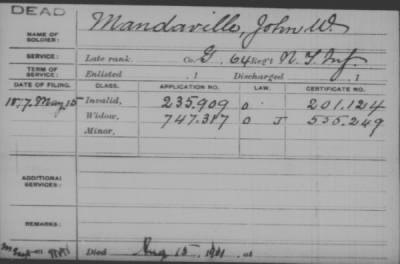 DEAD
NAME OF SOLDIER: Mandaville, John W.
SERVICE: Late rank, Co. G, 64 Reg't N.Y. Inf.
TERM OF SERVICE: Enlisted , 1 Discharged , 1
DATE OF FILING. CLASS. APPLICATION NO. LAW. CERTIFICATE NO.
1877 May 15 Invalid, 235.909 0 201.124
Widow, 747.317 0 J 555.249
Minor,
ADDITIONAL SERVICES:
REMARKS:
Died Aug 15, 1901, at